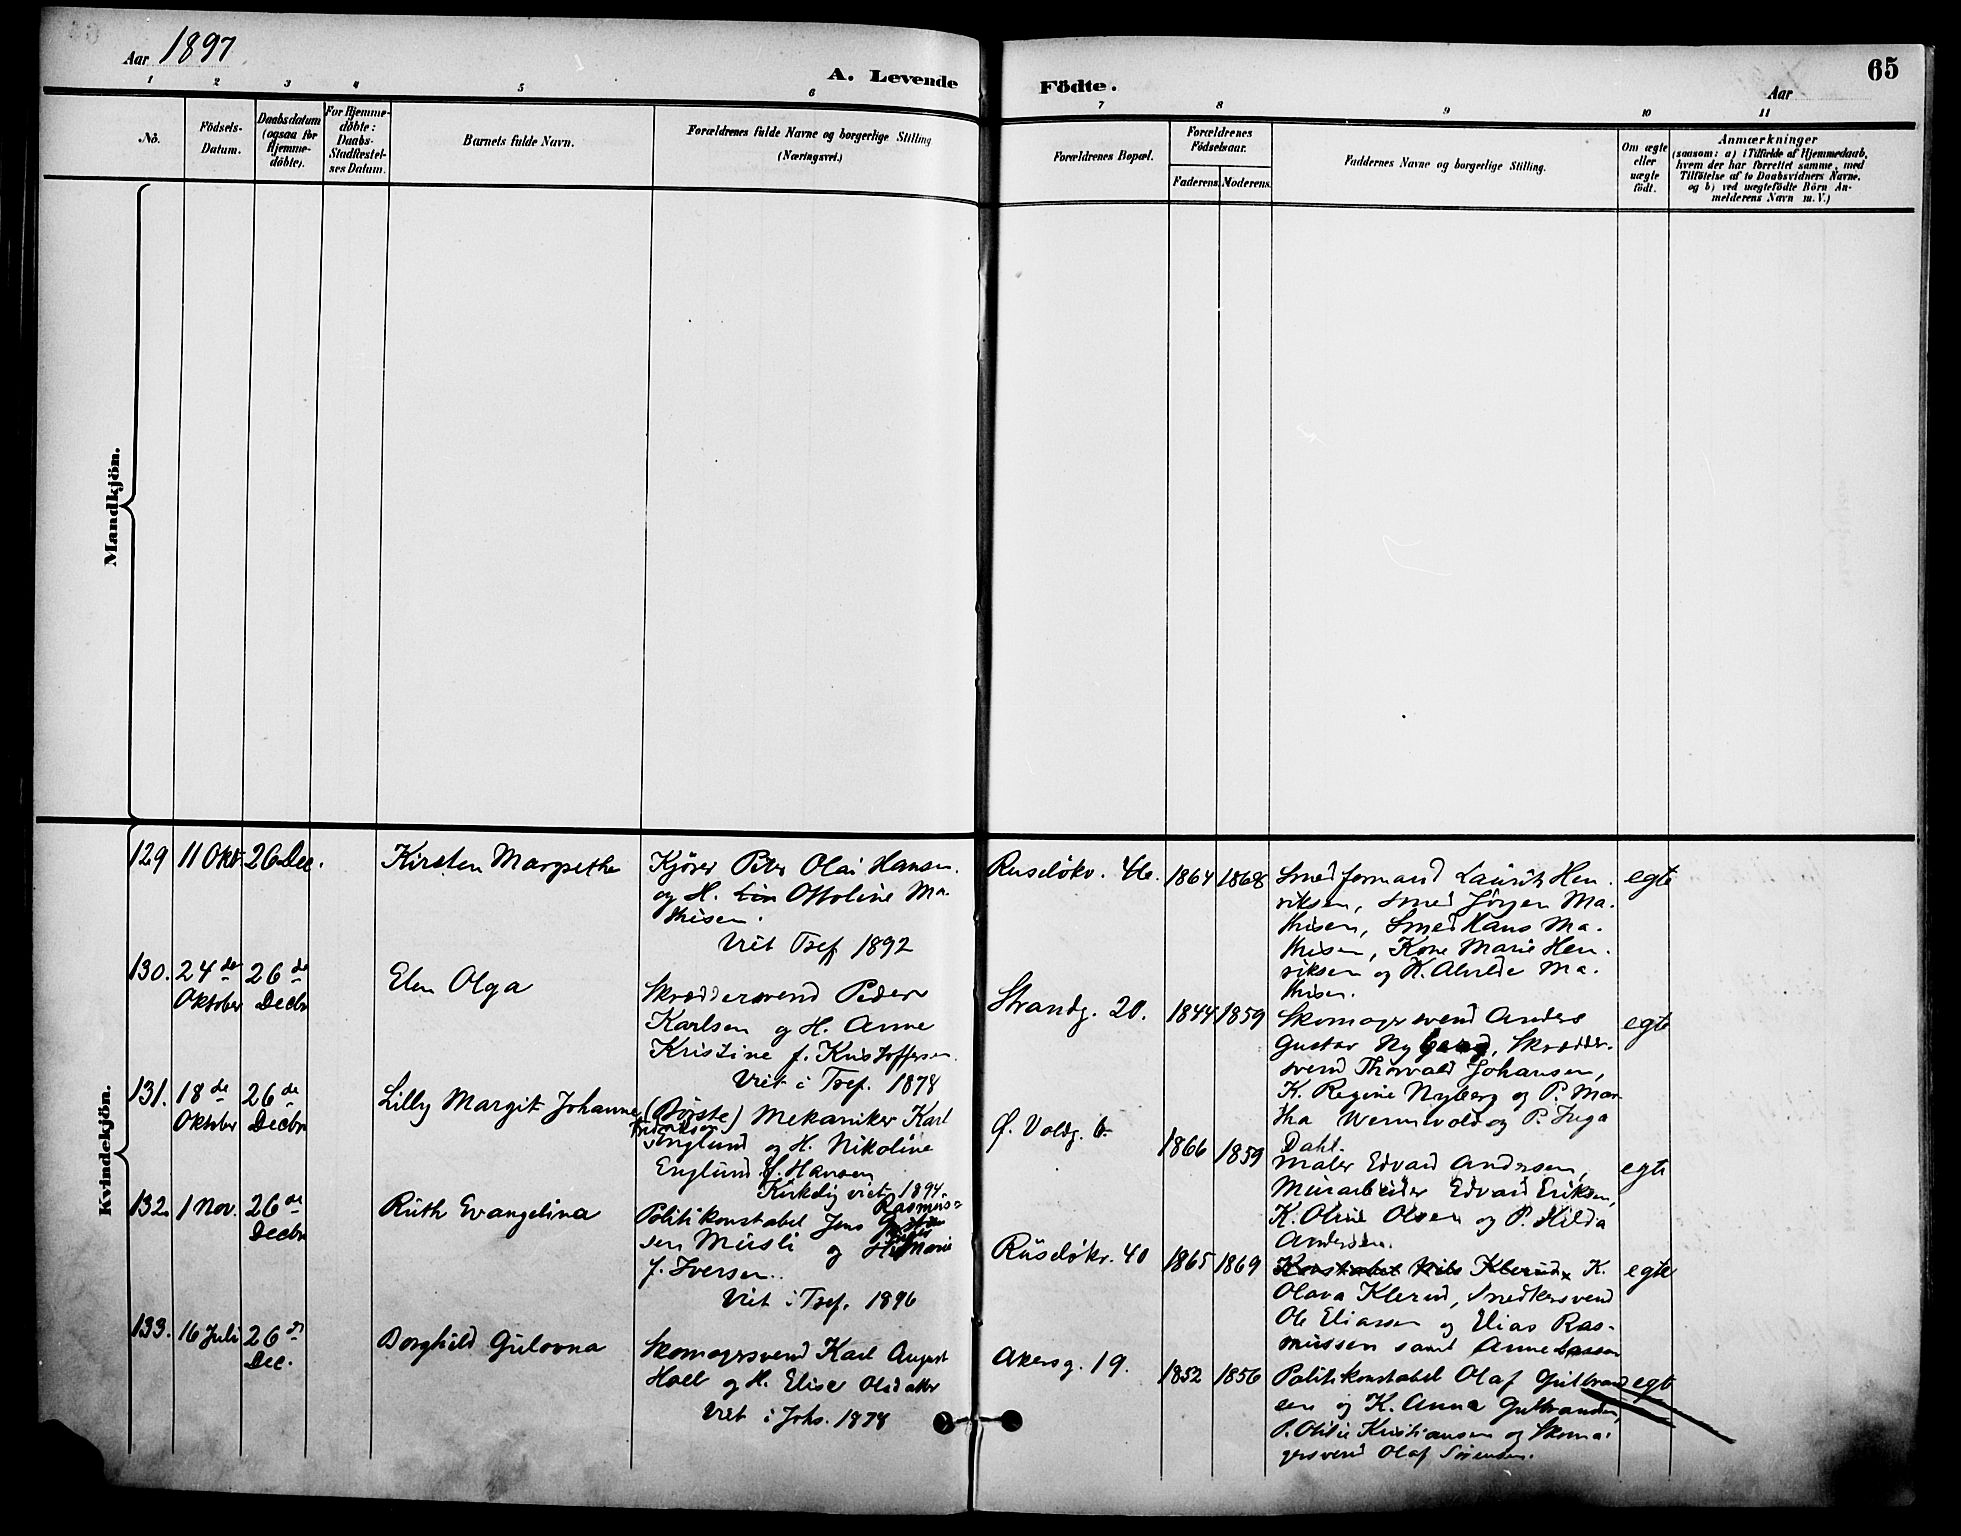 Aar 1897
A. Levende Födte.
65
Aar
1 2 3 4 5 6 7 8 9 10 11
No.
Födsels-
Datum.
Daabsdatum
(ogsaa for
Hjemme-
döbte).
For Hjemme-
döbte:
Daabs-
Stadfæstel-
ses Datum.
Barnets fulde Navn.
Forældrenes fulde Navne og borgerlige Stilling
(Næringsvei.)
Forældrenes Bopæl.
Forældrenes
Födselsaar.
Faderens. Moderens.
Faddernes Navne og borgerlige Stilling.
Om ægte
eller
uægte
födt.
Anmærkninger
(saasom: a) i Tilfælde af Hjemmedaab,
hvem der har forrettet samme, med
Tilföielse af to Daabsvidners Navne.
og b) ved uægtefödte Börn An-
melderens Navn m. V.)
Mandkjön.
Kvindekjön.
129 11 Okt. 26 Dec.
Kirsten Margrethe
Kjører Peter Olai Hansen
og H. Ottoline Ma-
thisen.
Viet Tref 1892
Ruseløkv. 46.
1864 1868
Smedformand Laurits Hen-
riksen, Smed Jørgen Ma-
thisen, Smed Hans Ma-
thisen, Kone Marie Hen-
riksen og K. Alvilde Ma-
thisen.
egte
130. 24de 26de
Oktober Decbr
Elen Olga
Skræddersvend Peder
Karlsen og H. Anne
Kristine f. Kristoffersen.
Viet i Tref. 1878
Strandg. 20.
1844 1859
Skomagersvend Anders
Gustav Nyberg, Skrædder-
svend Thorvald Johansen,
K. Regine Nyberg og P. Mar-
tha Wermvold og P. Inga
Dahl.
egte
131. 18de 26de
Oktober Decbr
Lilly Margit Johanne
(Børste) Mekaniker Karl
Fredriksen
Englund og H. Nikoline
Englund f. Hansen
Kirkelig viet 1894.
Ø. Voldg. 6
1866 1859
Maler Edvard Andersen,
Murarbeider Edvard Eriksen,
K. Oline Olsen og P. Hilda
Andersen.
egte
132. 1 Nov. 26de
Decbr
Ruth Evangelina
Politikonstabel Jens Rasmus-
sen Musli og Marie
f. Iversen.
Viet i Tref. 1896
Ruseløkv. 40
1865 1869
Konstabel Nils Klerud K.
Olava Klerud, Snedkersvend
Ole Eliassen og Elias Ras-
mussen samt Anne
egte
133. 16 Juli 26de
Dec.
Borghild Gulovna
Skomagersvend Karl August
Holt og H. Elise Olsdatter
Viet i Johs. 1878
Akersg. 19.
1852 1856
Politikonstabel Olaf Gulbrand-
sen og K. Anna Gulbrandsen,
P. Otilie Kristiansen og Skoma-
gersvend Olaf Sørensen.
egte